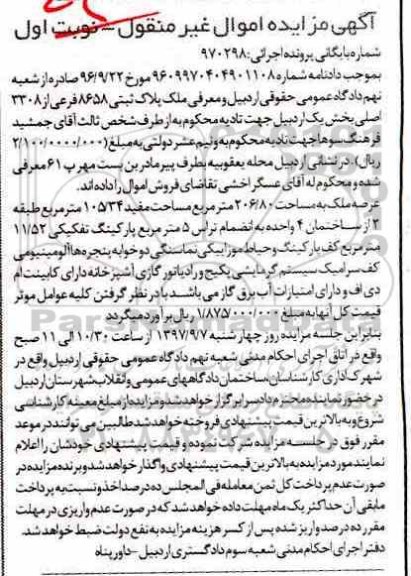 آگهی مزایده اموال غیر منقول - نوبت اول
شماره بایگانی پرونده اجرائی: ۹۷۰۲۹۸
بموجب دادنامه شماره ۹۶۰۹۹۷۰۴۰۴۹۰۱۱۰۸ مورخ ۹۶/۹/۲۲ صادره از شعبه
نهم دادگاه عمومی حقوقی اردبیل و معرفی ملک پلاک ثبتی ۸۶۵۸ فرعی از ۳۳۰۸
اصلی بخش یک اردبیل جهت تادیه محکوم به از طرف شخص ثالث آقای جمشید
فرهنگ سوها جهت تادیه محکوم به و نیم عشر دولتی به مبلغ (۲/۱۰۰/۰۰۰/۰۰۰
ریال). در نشانی اردبیل محله یعقوبیه بطرف پیرمادرین بست مهر پ ۶۱ معرفی
شده و محکوم له آقای عسگر اخشی تقاضای فروش اموال را داده اند.
عرصه ملک به مساحت ۲۰۶/۸۰ متر مربع مساحت مفید ۱۰۵/۳۴ متر مربع طبقه
۲ از ساختمان ۴ واحده به انضمام تراس ۵ متر مربع پارکینگ تفکیکی ۱۱/۵۲
متر مربع کف پارکینگ و حیاط موزاییکی نماسنگی دو خوابه پنجره ها آلومینیومی
کف سرامیک سیستم گرمایشی پکیج و رادیاتور گازی آشپزخانه دارای کابینت ام
دی اف و دارای امتیازات آب برق گاز می باشد با در نظر گرفتن کلیه عوامل موثر
قیمت کل آنها به مبلغ ۱/۸۷۵/۰۰۰/۰۰۰ ریال برآورد میگردد
بنابراین جلسه مزایده روز چهارشنبه ۱۳۹۷/۹/۷ از ساعت ۱۰/۳۰ الی ۱۱ صبح
واقع در اتاق اجرای احکام مدنی شعبه نهم دادگاه عمومی حقوقی اردبیل واقع در
شهرک اداری کارشناسان ساختمان دادگاههای عمومی و انقلاب شهرستان اردبیل
در حضور نماینده محترم دادسرا برگزار خواهد شد و مزایده از مبلغ معینه کارشناسی
شروع و به بالاترین قیمت پیشنهادی فروخته خواهد شد طالبین می توانند در موعد
مقرر فوق در جلسه مزایده شرکت نموده و قیمت پیشنهادی خودشان را اعلام
نمایند مورد مزایده به بالاترین قیمت پیشنهادی واگذار خواهد شد و برنده مزایده در
صورت عدم پرداخت کل ثمن معامله فی المجلس ده درصد اخذ و نسبت به پرداخت
مابقی آن حداکثر یک ماه مهلت داده خواهد شد که در صورت عدم واریزی در مهلت
مقرر ده درصد واریز شده پس از کسر هزینه مزایده به نفع دولت ضبط خواهد شد.
دفتر اجرای احکام مدنی شعبه سوم دادگستری اردبیل - داورپناه